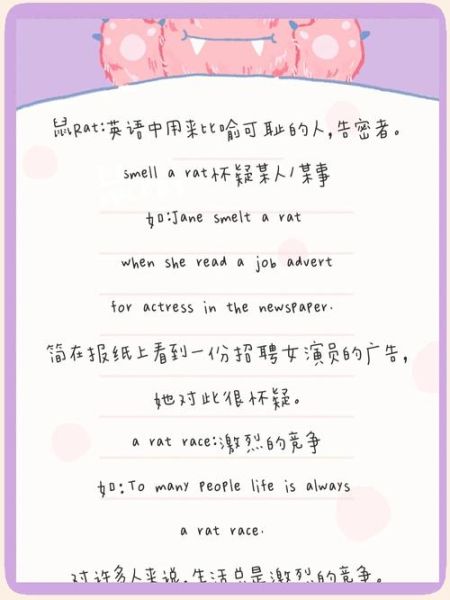 鼠Rat:英语中用来比喻可耻的人,告密者。
smell a rat怀疑某人/某事
如:Jane smelt a rat
when she read a job advert
for actress in the newspaper.
简在报纸上看到一份招聘女演员的广告,
她对此很怀疑。
a rat race:激烈的竞争
如:To many people life is always
a rat race.
对许多人来说,生活总是激烈的竞争。